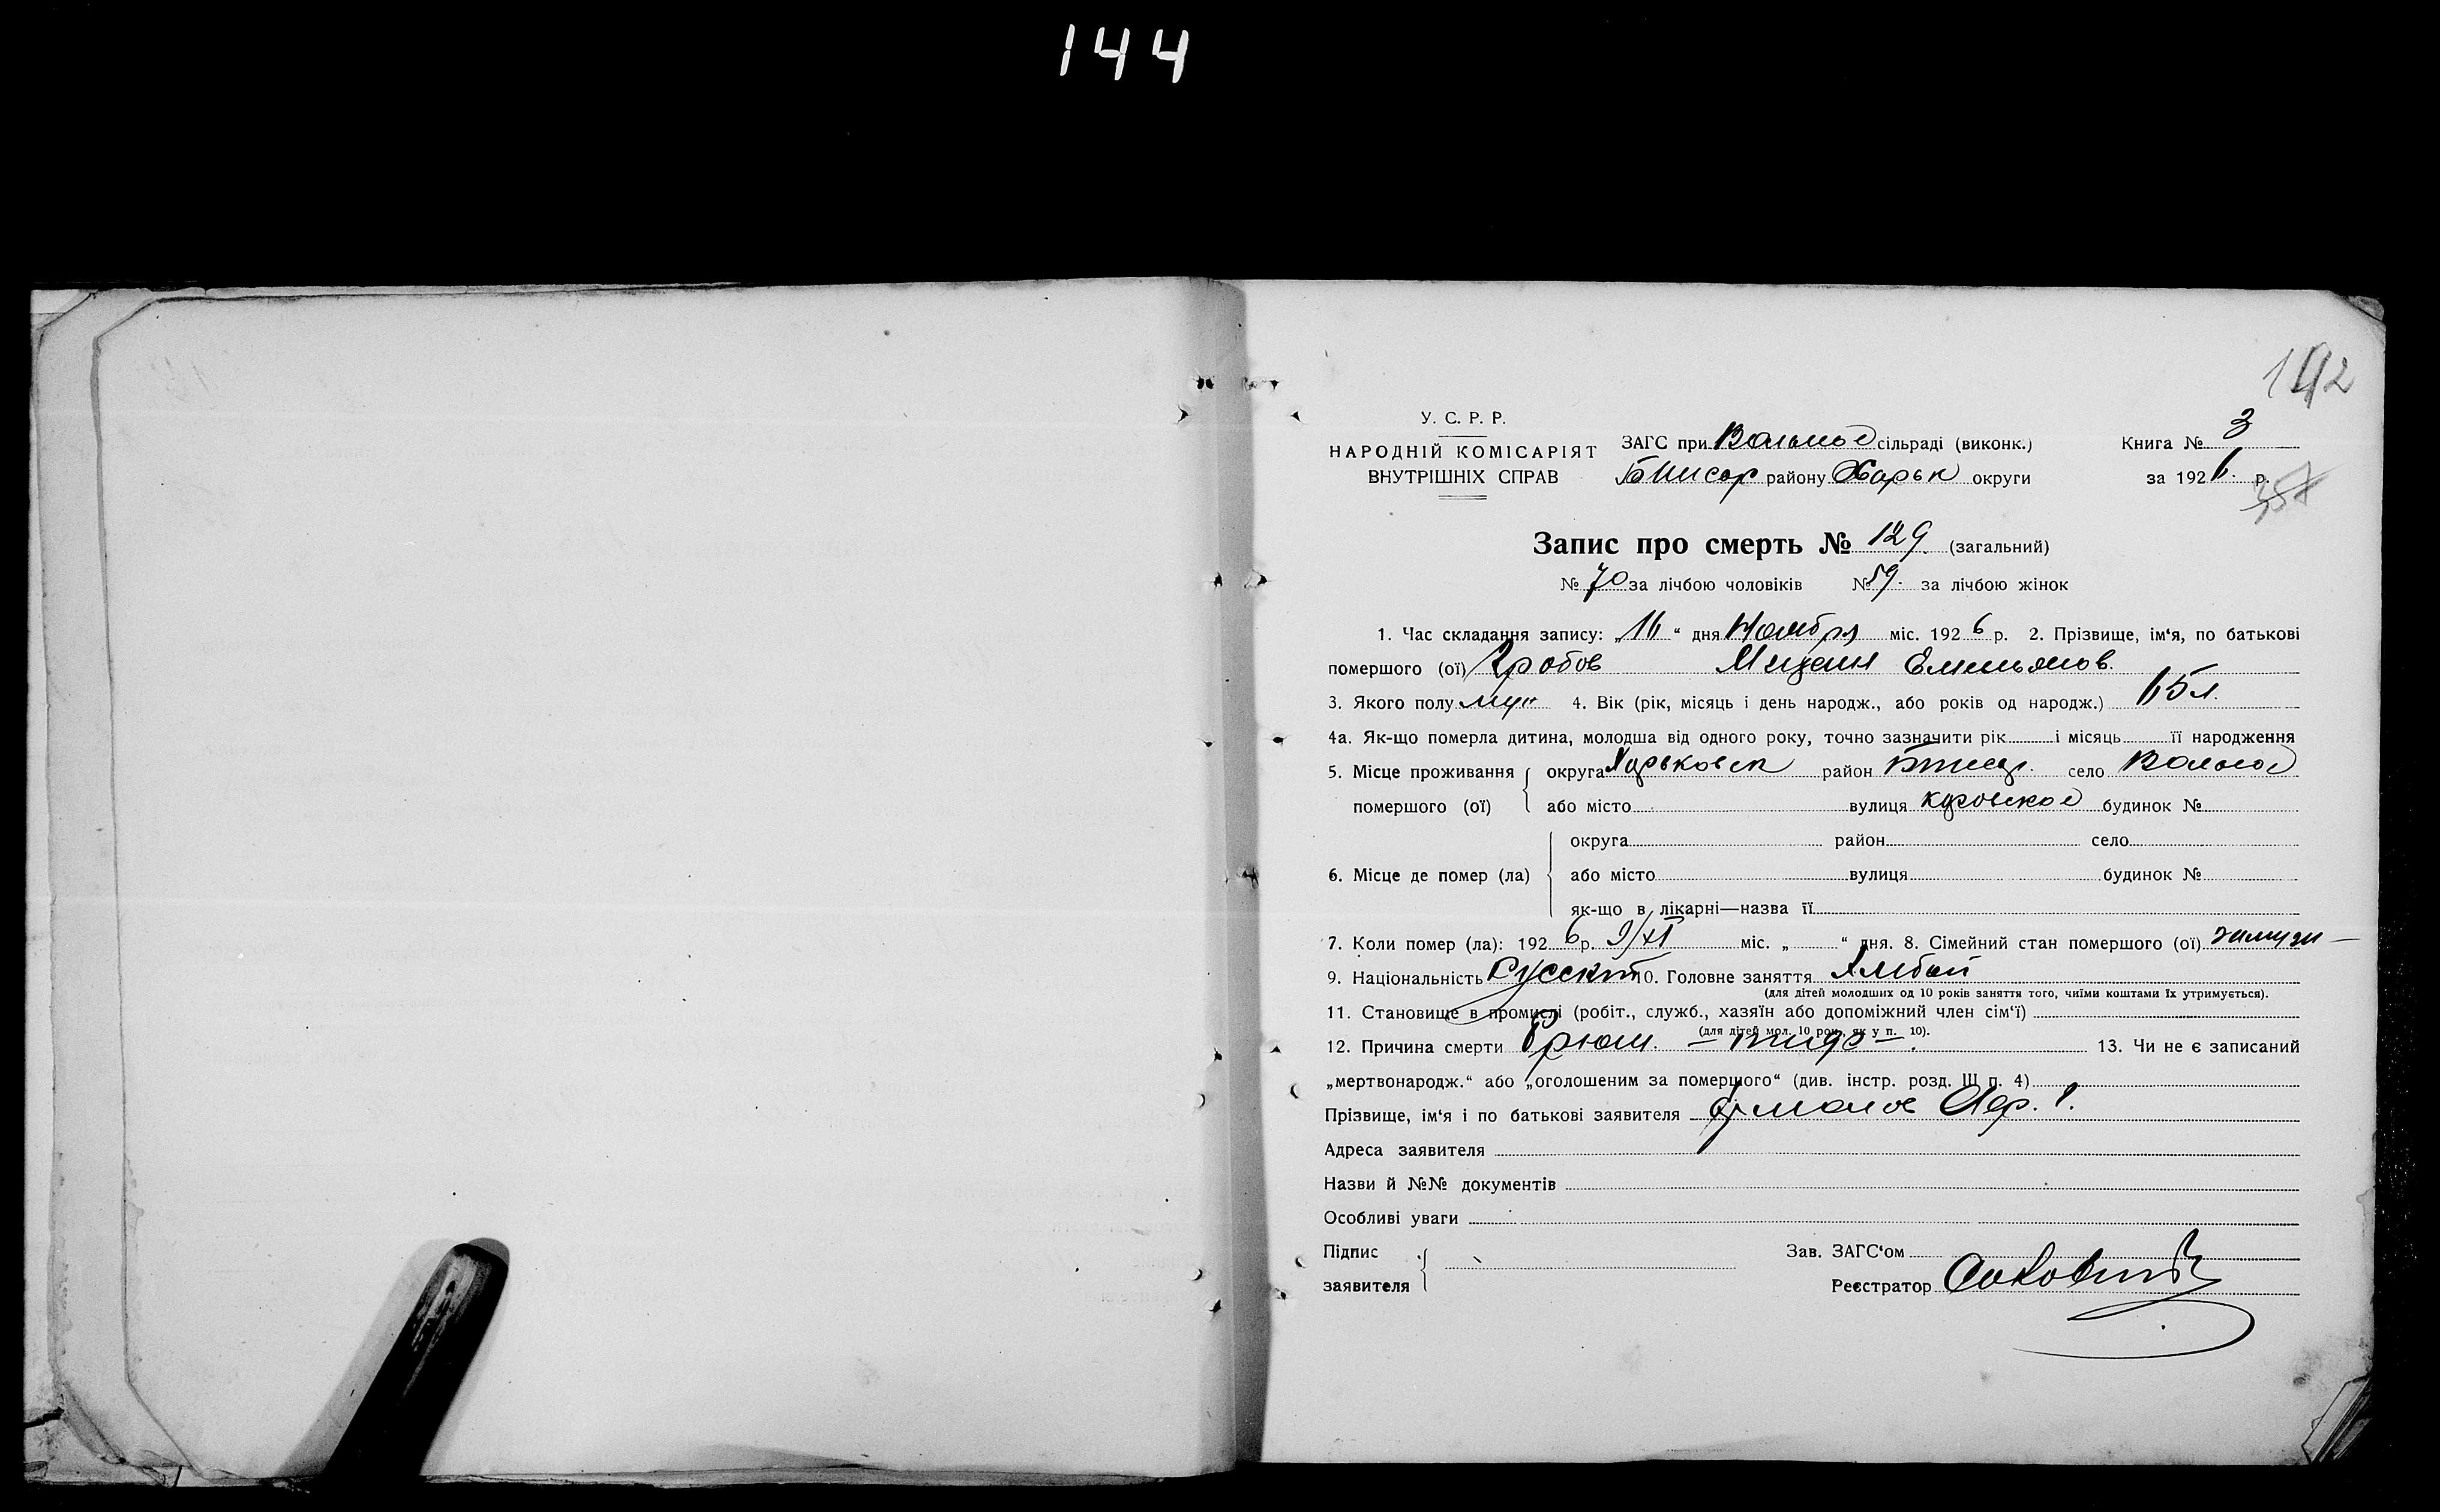 144
142
У. С. Р. Р.
НАРОДНІЙ КОМІСАРІЯТ
ВНУТРІШНІХ СПРАВ
ЗАГС при Вольное сільраді (виконк.)
району Харьк округи
Книга № 3
за 1926 р.
357
Запис про смерть № 129. (загальний)
№ 70 за лічбою чоловіків № 59. за лічбою жінок
1. Час складання запису: „16“ дня Ноября міс. 1926 р. 2. Прізвище, ім‘я, по батькові
помершого (ої) Гробов Михаил Емельянов.
3. Якого полу муж 4. Вік (рік, місяць і день народж., або років од народж.) 65 л.
4а. Як-що померла дитина, молодша від одного року, точно зазначити рік і місяць її народження
5. Місце проживання округа Харьковск район село Вольное
помершого (ої) або місто вулиця будинок №
округа район село
6. Місце де помер (ла) або місто вулиця будинок №
як-що в лікарні—назва її
7. Коли помер (ла): 1926 р. 9/XI міс. „ “ дня. 8. Сімейний стан помершого (ої)
9. Національність Русский 10. Головне заняття
(для дітей молодших од 10 років заняття того, чиїми коштами їх утримується).
11. Становище в промислі (робіт., служб., хазяїн або допоміжний член сім‘ї)
(для дітей мол. 10 рок., як у п. 10).
12. Причина смерти 13. Чи не є записаний
„мертвонародж.“ або „оголошеним за помершого“ (див. інстр. розд. III п. 4)
Прізвище, ім‘я і по батькові заявителя
Адреса заявителя
Назви й №№ документів
Особливі уваги
Підпис
заявителя
Зав. ЗАГС‘ом
Реєстратор